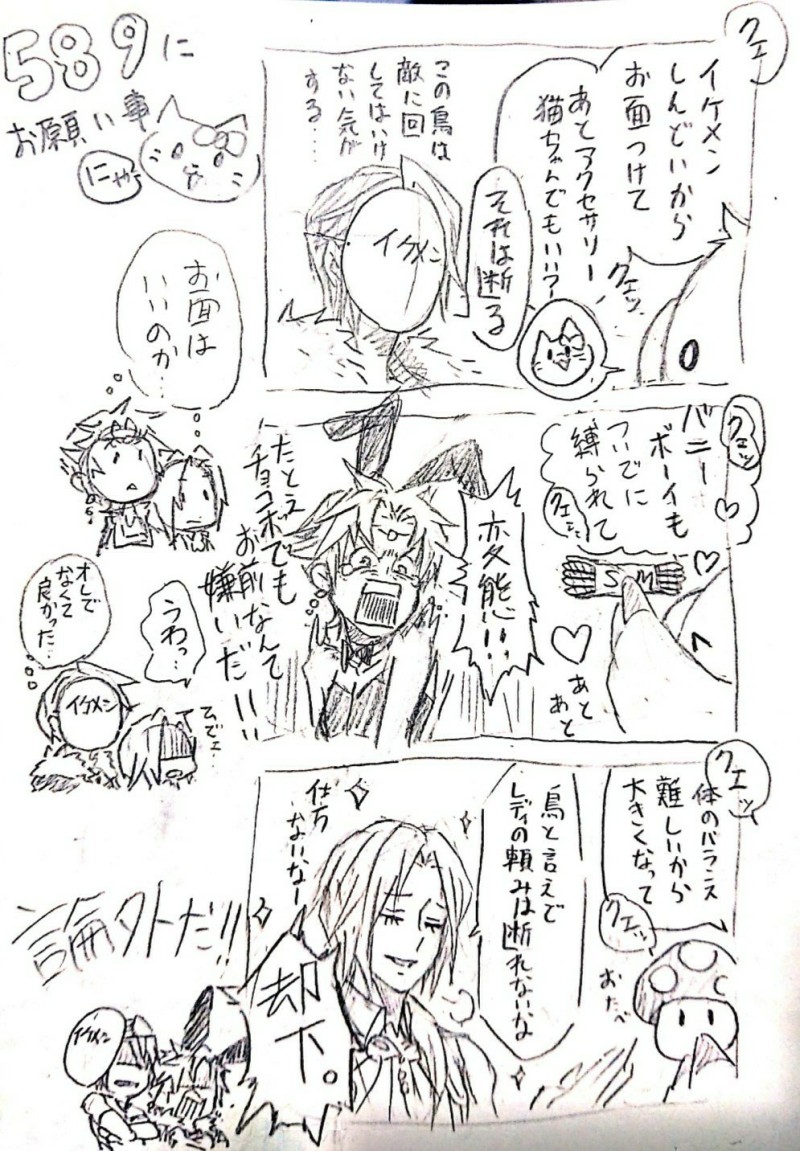 589に
お願い事
にゃー
クェッ
イケメン
しんどいから
お面つけて
クェッ
あとアクセサリー
猫ちゃんでもいい?
それは断る
この鳥は
敵に回
してはいけ
ない気が
する…
イケメン
お面は
いいのか…
クェッ
バニー
ボーイも
ついでに
縛られて
クェッ
SM
あと
あと
変態!!
たとえ
チョコボでも
お前なんて
嫌いだ!!!
オレで
なくて
良かった…
うわっ…
ひでェ…
イケメン
クェッ
体のバランス
難しいから
大きくなって
クェッ
おたべ
鳥と言えど
レディの頼みは断れないな
仕方
ないなー
却下。
論外だ!!
イケメン